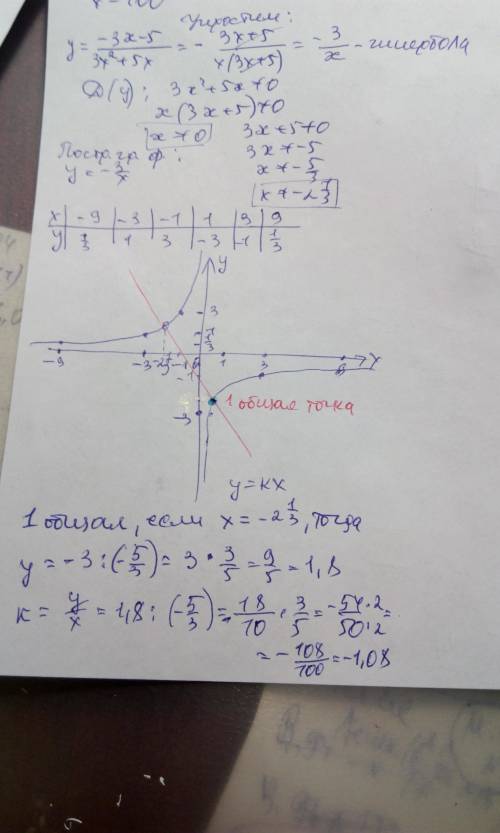 Упростим:
y = \frac{-3x-5}{3x²+5x} = - \frac{3x+5}{x(3x+5)} = - \frac{3}{x} - гипербола
D(y): 3x²+5x≠0
x(3x+5)≠0
x≠0 3x+5≠0
3x≠-5
x≠-\frac{5}{3}
x≠-2\frac{1}{3}
y=-\frac{3}{x}
x | -9 | -3 | -1 | 1 | 3 | 9
y | \frac{1}{3} | 1 | 3 | -3 | -1 | \frac{1}{3}
y
3
-9 -3 -1 1 3 9 x
-1
-3
1 общая точка
y=kx
1 общая, если x=-2\frac{1}{3}, тогда
y = -3:(-\frac{5}{3}) = 3·\frac{3}{5} = \frac{9}{5} = 1,8
k = \frac{y}{x} = 1,8:(-\frac{5}{3}) = -\frac{18}{10}·\frac{3}{5} = -\frac{54·2}{50·2} =
= -\frac{108}{100} = -1,08